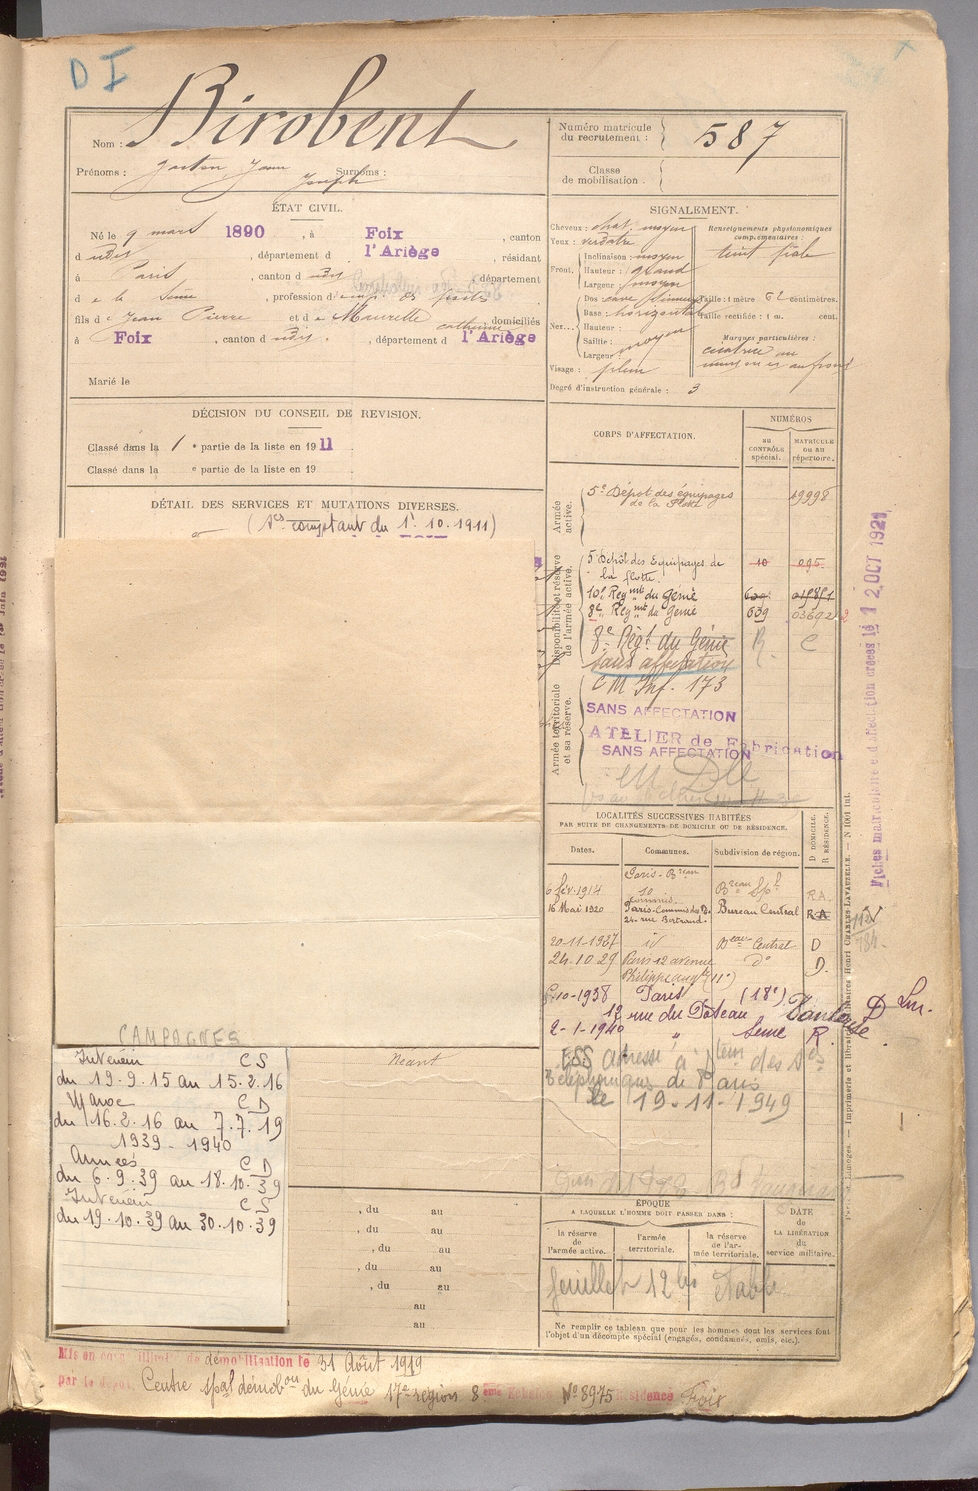 D I
Nom : Birobent
Prénoms : Gaston Jean Joseph Surnoms :
Numéro matricule du recrutement : 587
Classe de mobilisation :
ÉTAT CIVIL.
Né le 9 mars 1890, à Foix, canton
d udit, département d l'Ariège, résidant
à Paris, canton d udit, département
d e la Seine, profession d'emp. des postes
fils d e Jean Pierre et d e Maurette Catherine, domiciliés
à Foix, canton d udit, département d l'Ariège
Marié le
SIGNALEMENT.
Cheveux : chat. moyen
Yeux : verdâtre
Front. Inclinaison : moyen
Hauteur : grand
Largeur : moyen
Nez... Dos cave sinueux
Base : horizontal
Hauteur :
Saillie :
Largeur : moyen
Visage : plein
Degré d'instruction générale : 3
Renseignements physionomiques complémentaires :
teint pâle
Taille : 1 mètre 62 centimètres.
Taille rectifiée : 1 m. cent.
Marques particulières :
cicatrice au
DÉCISION DU CONSEIL DE REVISION.
Classé dans la 1 e partie de la liste en 1911
Classé dans la e partie de la liste en 19
DÉTAIL DES SERVICES ET MUTATIONS DIVERSES.
(Ses comptant du 1er 10.1911)
CORPS D'AFFECTATION.
NUMÉROS
au CONTRÔLE spécial.
MATRICULE ou au répertoire.
Armée active.
5e Dépôt des équipages de la Flotte 19998
Disponibilité et réserve de l'armée active.
5e Dépôt des Equipages de la flotte. 10 095
10e Régmt du Génie
8e Régmt du Génie 639 03692
8e Régt du Génie R C
sans affectation
Armée territoriale et sa réserve.
C M Inf. 173
SANS AFFECTATION
ATELIER de Fabrication
SANS AFFECTATION
LOCALITÉS SUCCESSIVES HABITÉES
PAR SUITE DE CHANGEMENTS DE DOMICILE OU DE RÉSIDENCE.
Dates. Communes. Subdivision de région. D DOMICILE. R RÉSIDENCE.
6 fév. 1914 Paris-Breau 10 RA
16 Mai 1920 Paris-Commis des P. 24. rue Bertrand. Bureau Central R A
20-11-1927 id Beau Central D
24.10.29 Paris 12 avenue Philippe aug. (11e) do D.
5-10-1938 Paris (18e) 12 rue du Poteau D
2-1-1940 " Seine R.
ESS adressé à
Téléphoniques de Paris
le 19-11-1949
CAMPAGNES
Néant
Intérieur C S
du 19.9.15 au 15.2.16
Maroc C D
du 16.2.16 au 7.7.19
1939 - 1940
Armées C D
du 6.9.39 au 18.10.39
Intérieur C S
du 19.10.39 au 30.10.39
, du au
, du au
, du au
, du au
, du au
au
au
ÉPOQUE
A LAQUELLE L'HOMME DOIT PASSER DANS :
la réserve de l'armée active.
l'armée territoriale.
la réserve de l'armée territoriale.
DATE de LA LIBÉRATION du service militaire.
feuillet 12 bis établi
Ne remplir ce tableau que pour les hommes dont les services font l'objet d'un décompte spécial (engagés, condamnés, omis, etc.).
Mis en congé illimité de démobilisation le 31 Août 1919
par le dépôt Centre spal démobon du Génie 17e région 8 ème Echelon No 8975 Résidence Foix
Fiches matricule et d'affection créées le 12 OCT 1921
Paris et Limoges. — Imprimerie et librairie militaires Henri CHARLES-LAVAUZELLE. — N 1001 int.